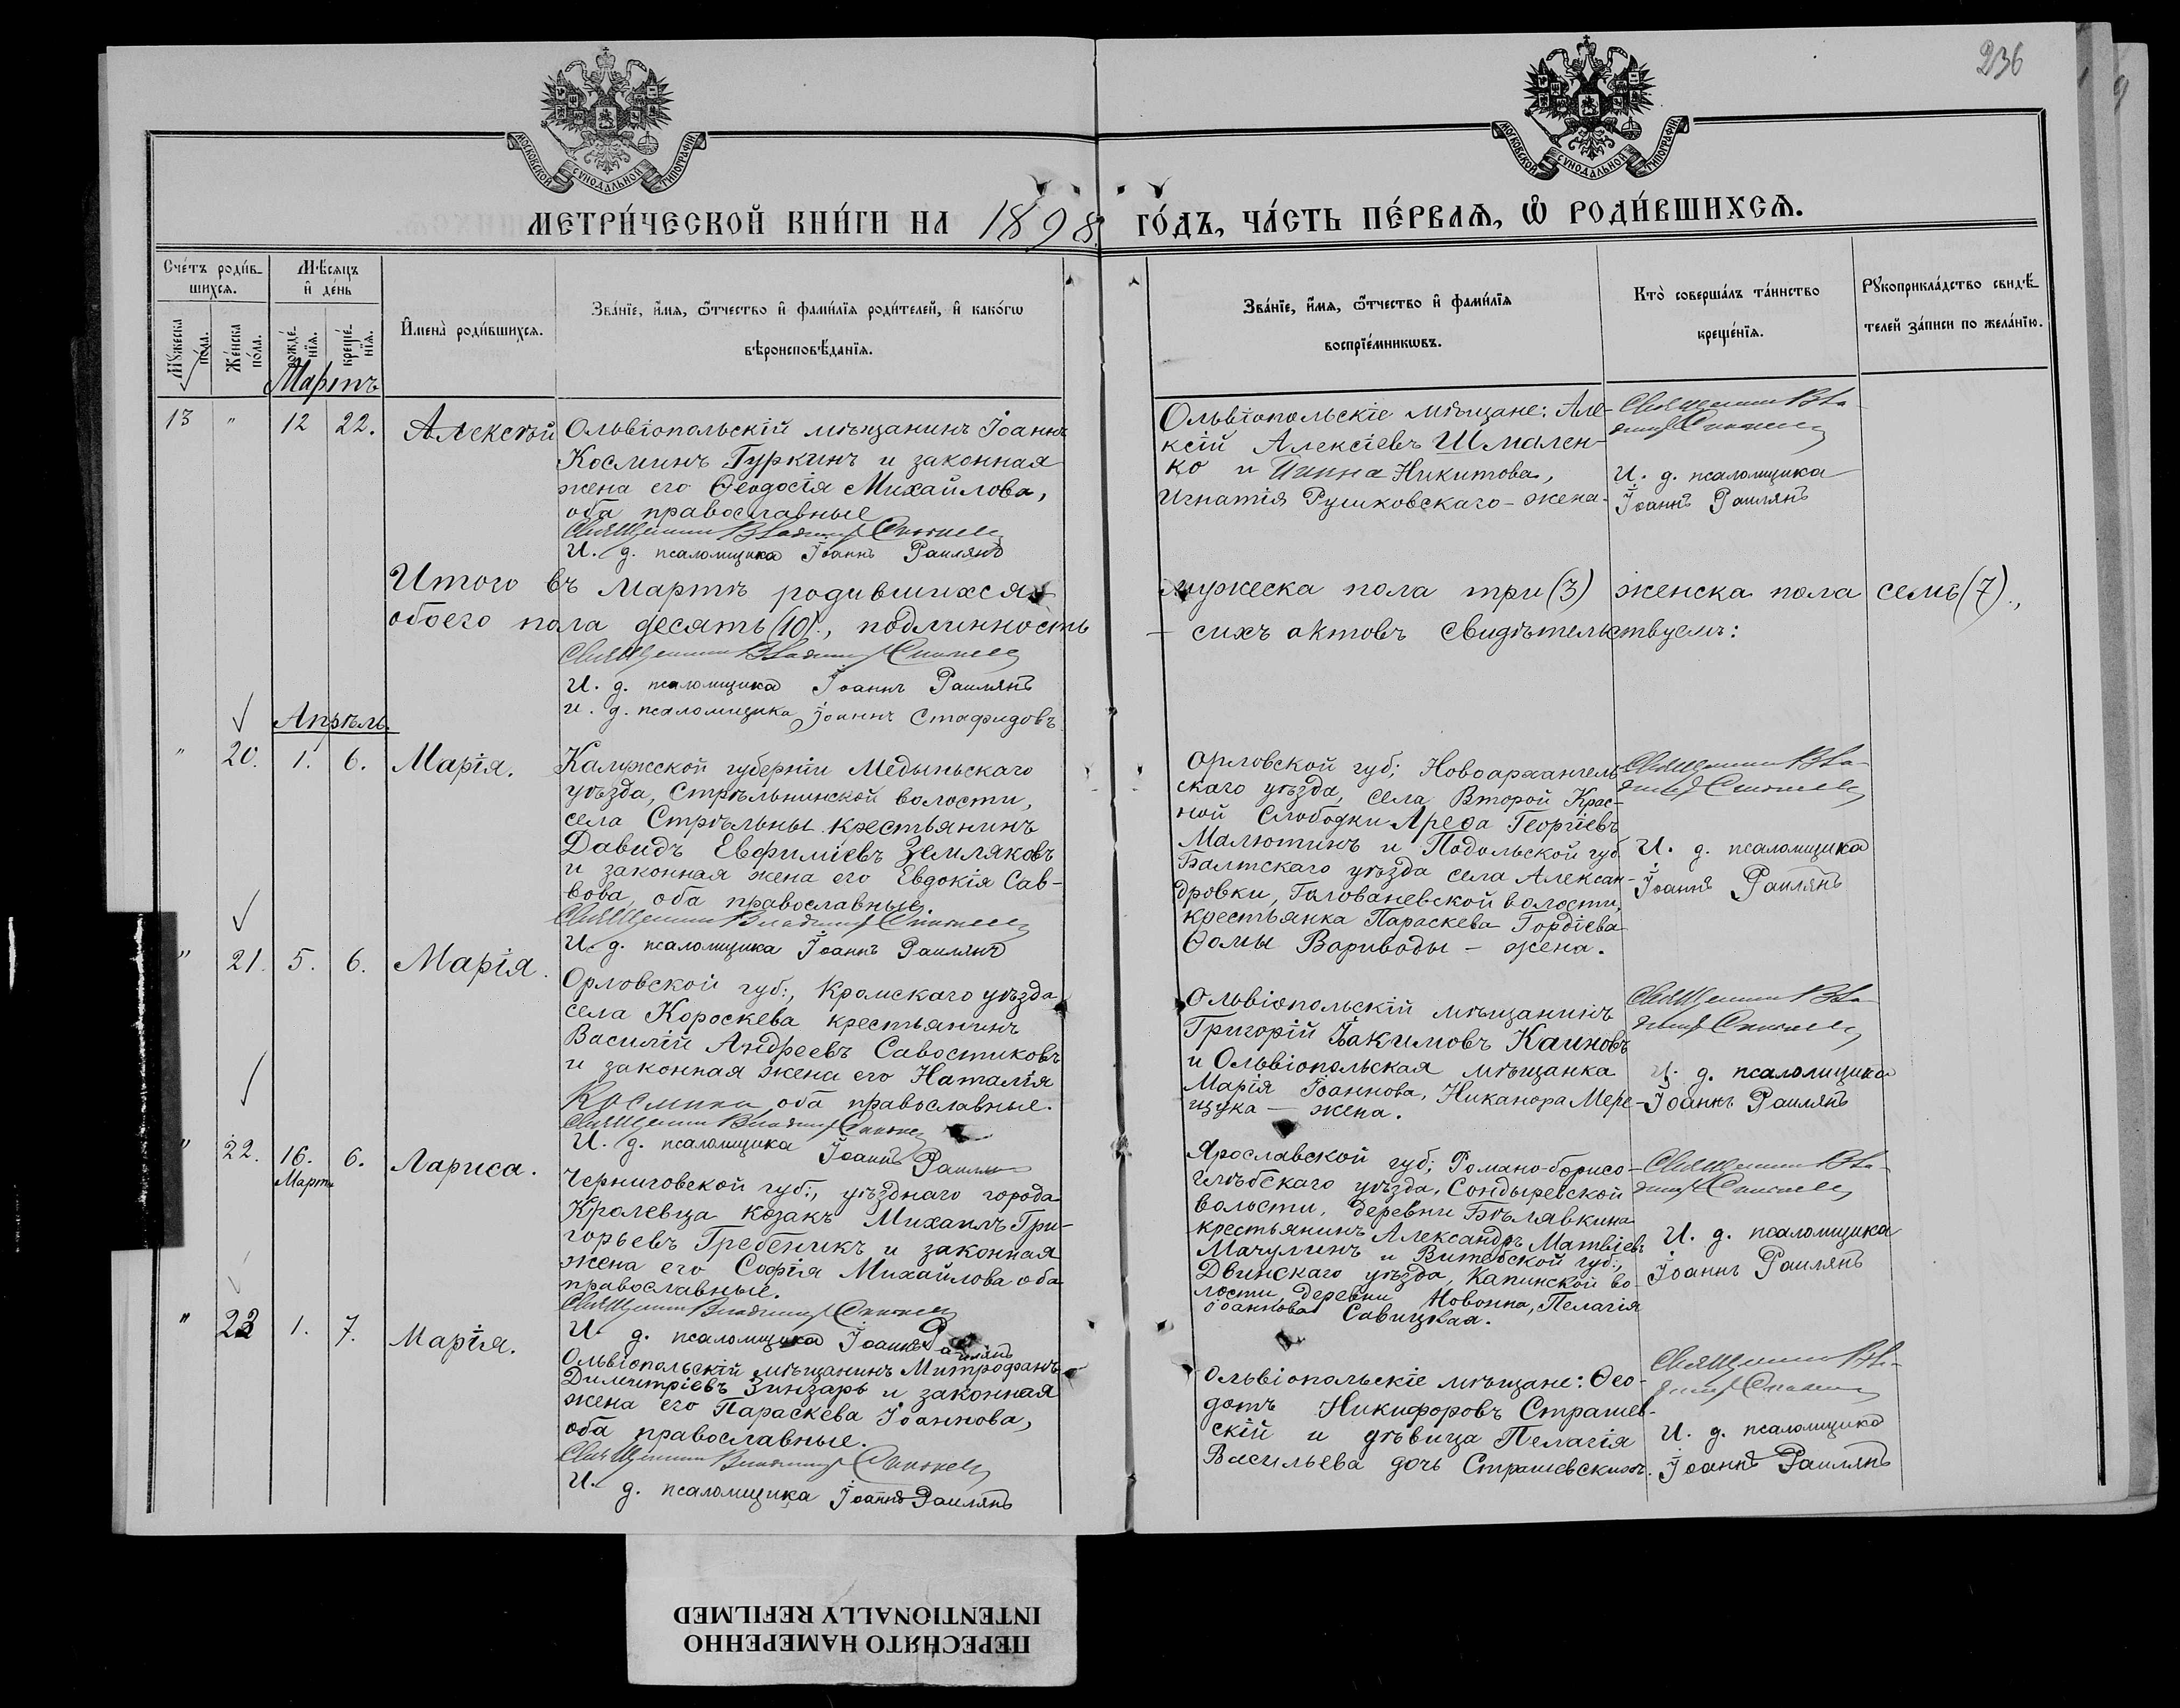 236
МОСКОВСКОЙ СѴНОДАЛЬНОЙ ТИПОГРАФІИ
МОСКОВСКОЙ СѴНОДАЛЬНОЙ ТИПОГРАФІИ
МЕТРИ́ЧЕСКОЙ КНИ́ГИ НА 1898 ГО́ДЪ, ЧА́СТЬ ПЕ́РВАѦ, Ѡ҆ РОДИ́ВШИХСѦ.
Сче́тъ роди́в-
шихсѧ.
Мꙋ́жеска по́ла.
Же́нска по́ла.
Мѣ́сяцъ
и҆ де́нь
рожде́-
нїѧ.
креще́-
нїѧ.
И҆мена̀ роди́вшихсѧ.
Зва́нїе, и҆́мѧ, ѻ҆́тчество и҆ фами́лїѧ роди́телей, и҆ како́гѡ
вѣроисповѣ́данїѧ.
Зва́нїе, и҆́мѧ, ѻ҆́тчество и҆ фами́лїѧ
воспрїе́мникѡвъ.
Кто̀ соверша́лъ та́инство
креще́нїѧ.
Рꙋкоприкла́дство свидѣ́-
телей за́писи по жела́нїю.
Мартъ
13 " 12 22. Алексѣй
Ольвіопольскій мѣщанинъ Іоаннъ
Косминъ Гуркинъ и законная
жена его Ѳеодосія Михайлова,
оба православные
Священникъ Владимір
И. д. псаломщика Іоаннъ Раилянъ
Ольвіопольскіе мѣщане: Але-
ксій Алексіевъ Шмален-
ко и Никитова,
Игнатія Рушковскаго - жена.
Священникъ Вла-
димір
И. д. псаломщика
Іоаннъ Раилянъ
Итого въ Мартѣ родившихся мужеска пола три (3) женска пола семь (7).,
обоего пола десять (10)., подлинность сихъ актовъ свидѣтельствуемъ:
Священникъ Владимір
И. д. псаломщика Іоаннъ Раилянъ
и. д. псаломщика Іоаннъ Стафидовъ
Апрѣль.
" 20. 1. 6. Марія.
Калужской губерніи Медыньскаго
уѣзда, Стрѣльнинской волости,
села Стрѣльны крестьянинъ
Давидъ Евфиміевъ Земляковъ
и законная жена его Евдокія Сав-
вова, оба православные
Священникъ Владимір
И. д. псаломщика Іоаннъ Раилянъ
Орловской губ; Новоархангель
скаго уѣзда, села Второй Крас-
ной Слободки Ареѳа Георгіевъ
Малютинъ и Подольской губ
Балтскаго уѣзда села Алексан-
дровки, Голованевской волости,
крестьянка Параскева Гордіева
Ѳомы Вариводы - жена.
Священникъ Вла-
димір
И. д. псаломщика
Іоаннъ Раилянъ
" 21. 5. 6. Марія.
Орловской губ:, Кромскаго уѣзда
села Короскева крестьянинъ
Василій Андреевъ Савостиковъ
и законная жена его Наталія
Космина, оба православные.
Священникъ Владимір
И. д. псаломщика Іоаннъ Раилянъ
Ольвіопольскій мѣщанинъ
Григорій Іакимовъ Каиновъ
и Ольвіопольская мѣщанка
Марія Іоаннова, Никанора Мере-
щука - жена.
Священникъ Вла-
димір
И. д. псаломщика
Іоаннъ Раилянъ
" 22. 16. 6. Лариса.
Март
Черниговской губ:, уѣзднаго города
Кролевца козакъ Михаилъ Гри-
горьевъ Гребеникъ и законная
жена его Софія Михайлова оба
православные.
Священникъ Владимір
И. д. псаломщика Іоаннъ Раилянъ
Ярославской губ; Романо-борисо-
глѣбскаго уѣзда, Сондыревской
волости, деревни Бѣлявкина
крестьянинъ Александръ Матвіевъ
Мачулинъ и Витебской губ.,
Двинскаго уѣзда, Капинской во-
лости, деревни Новонка, Пелагія
Іоаннова Савицкая.
Священникъ Вла-
димір
И. д. псаломщика
Іоаннъ Раилянъ
" 23 1. 7. Марія.
Ольвіопольскій мѣщанинъ Митрофанъ
Димитріевъ Зинзарь и законная
жена его Параскева Іоаннова,
оба православные.
Священникъ Владимір
И. д. псаломщика Іоаннъ Раилянъ
Ольвіопольскіе мѣщане: Ѳео-
дотъ Никифоровъ Страшев-
скій и дѣвица Пелагія
Васильева дочь Страшевскихъ.
Священникъ Вла-
димір
И. д. псаломщика
Іоаннъ Раилянъ
ПЕРЕСНЯТО НАМЕРЕННО
INTENTIONALLY REFILMED